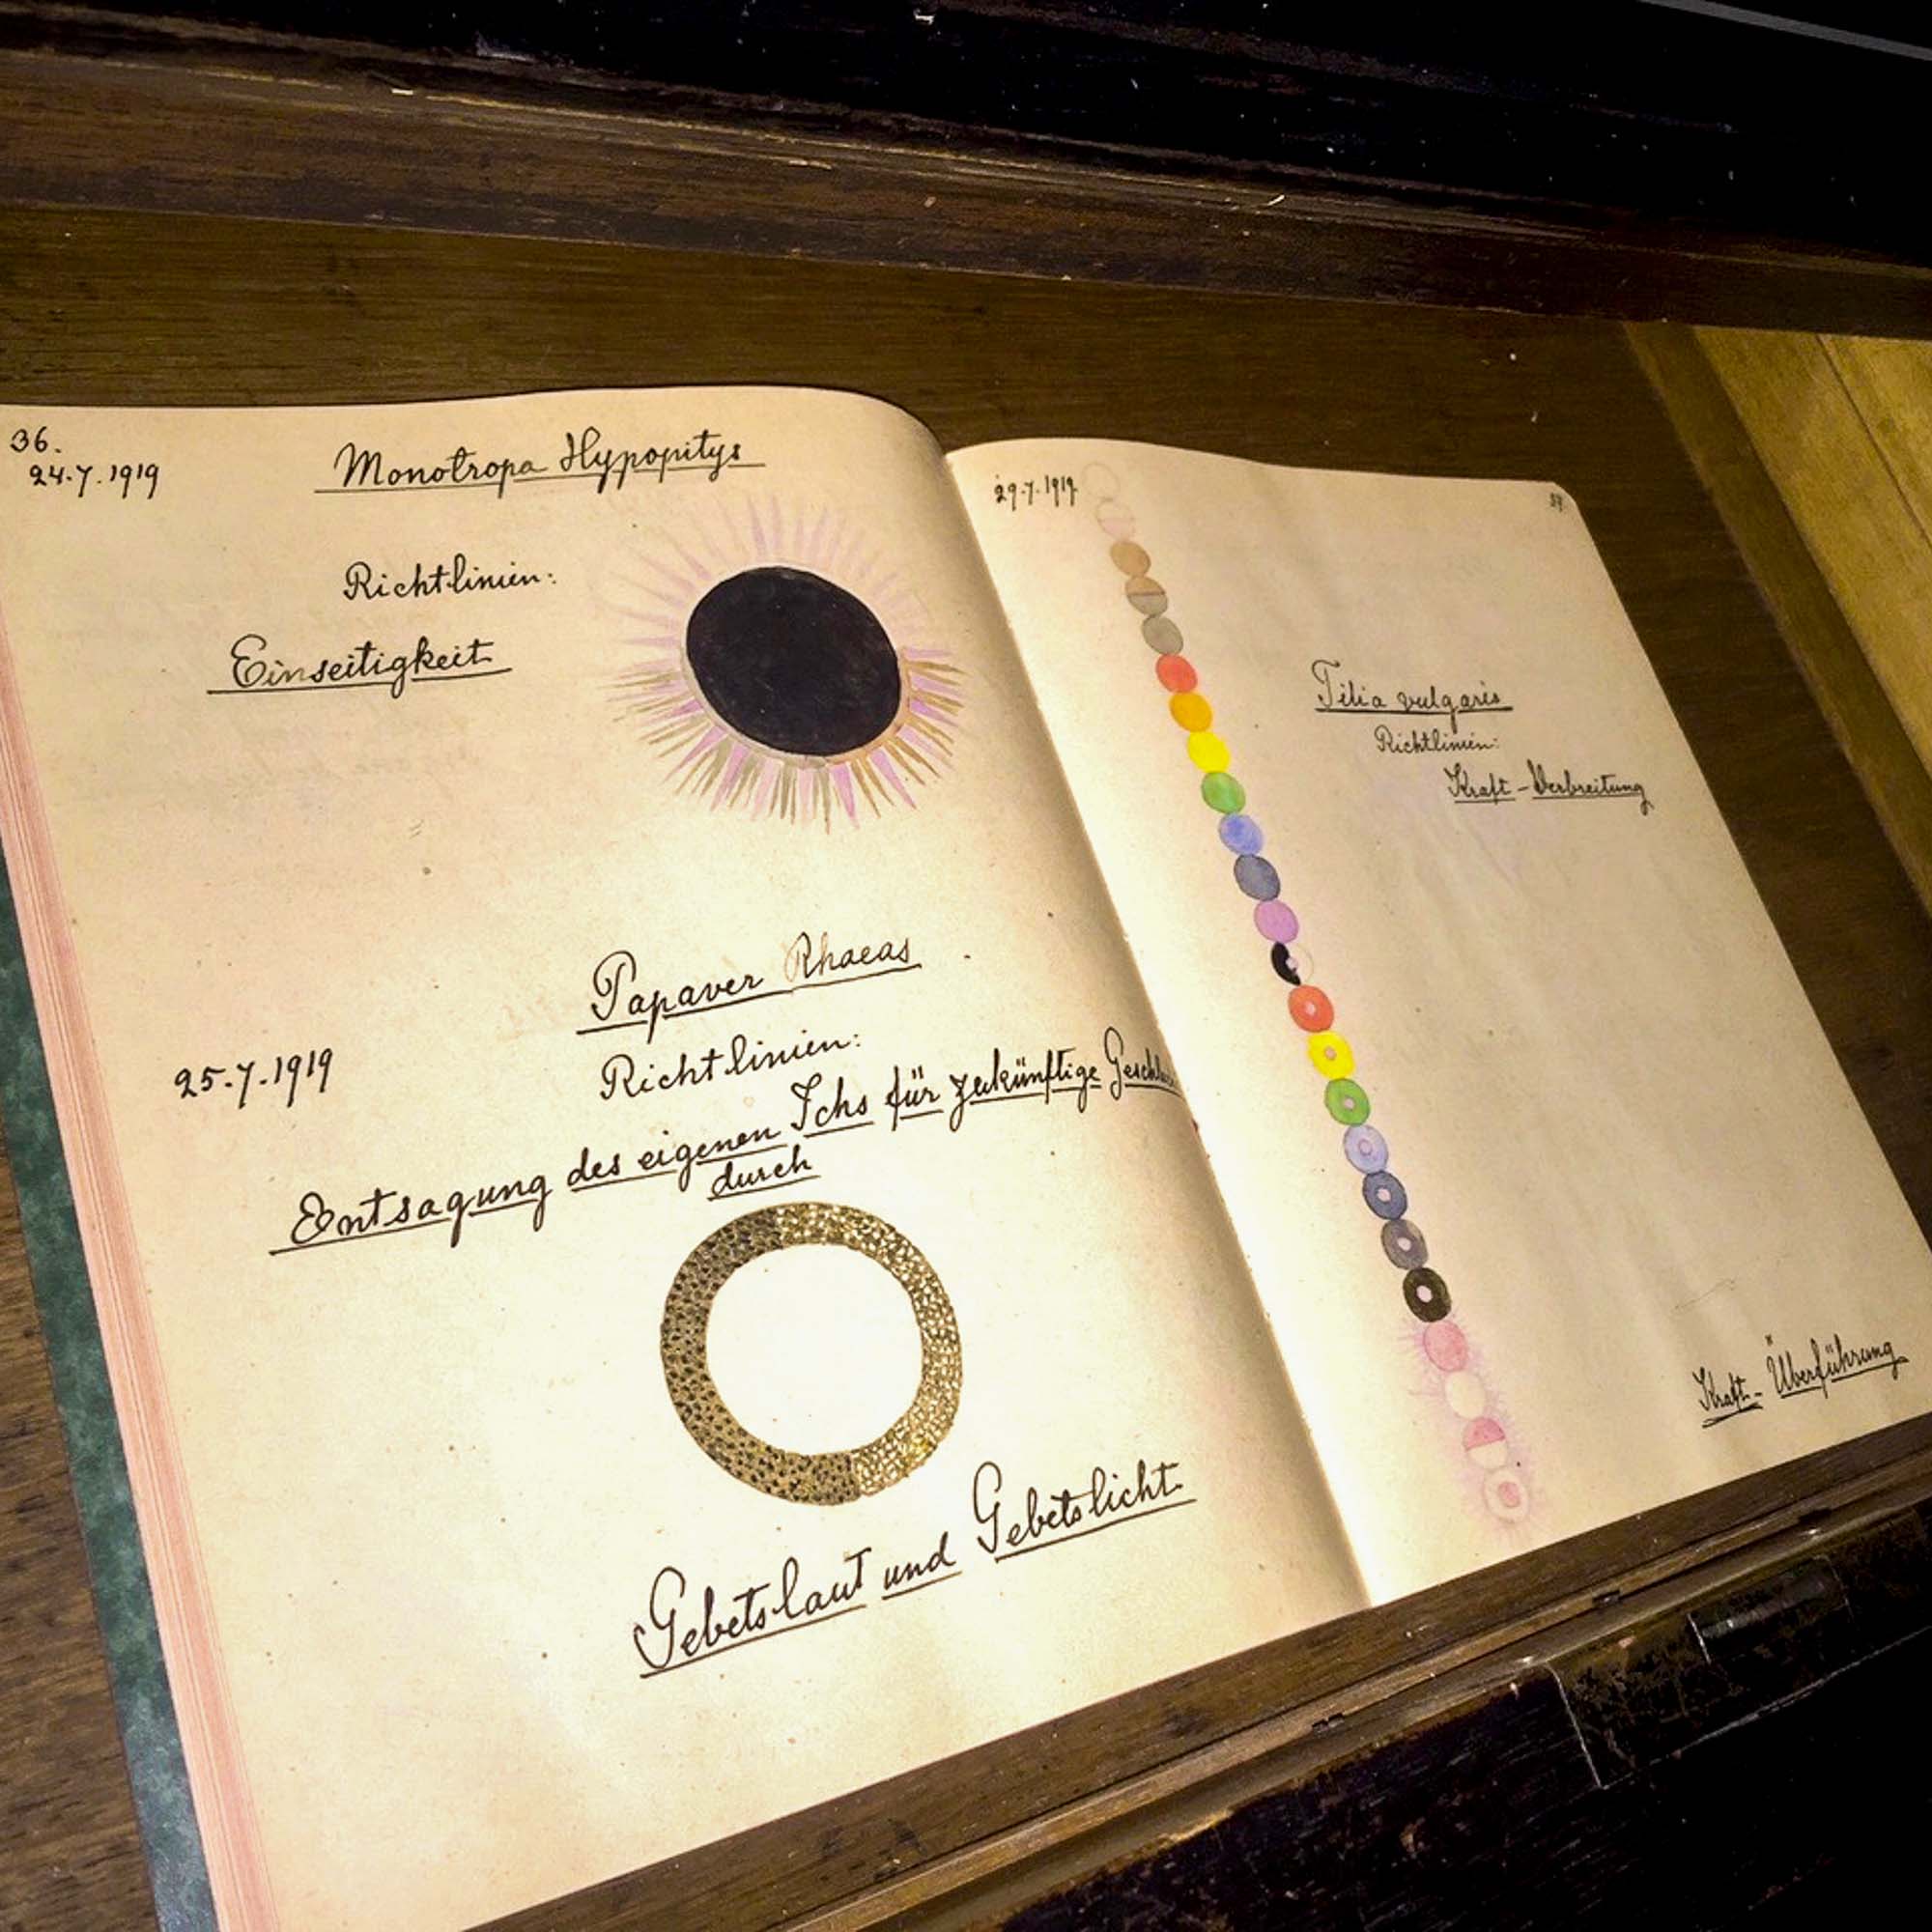 36.
24.7.1919
Monotropa Hypopitys
Richtlinien:
Einseitigkeit
Papaver Rhaeas
25.7.1919
Richtlinien:
Entsagung des eigenen Ichs für zukünftige
durch
Gebetslaut und Gebetslicht
29.7.1919
37.
Tilia vulgaris
Richtlinien:
Kraft-Verbreitung
Kraft-Überführung